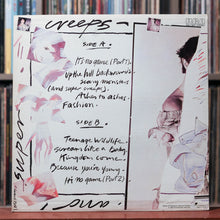 creeps
SIDE A.
It's no game (Part 1)
Up the hill backwards
Scary monsters
(and super creeps).
Ashes to ashes.
Fashion.
SIDE B.
Teenage Wildlife.
Scream like a baby
Kingdom Come.
Because you're young.
It's no game (Part 2)
super
and